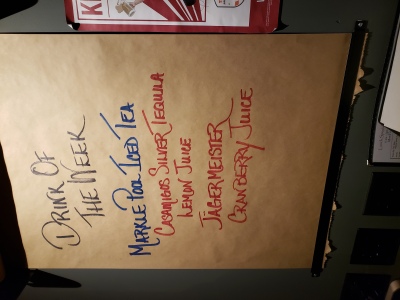 Drink Of
The Week
Markle Pool Iced Tea
Casamigos Silver Tequila
Lemon Juice
Jägermeister
Cranberry Juice